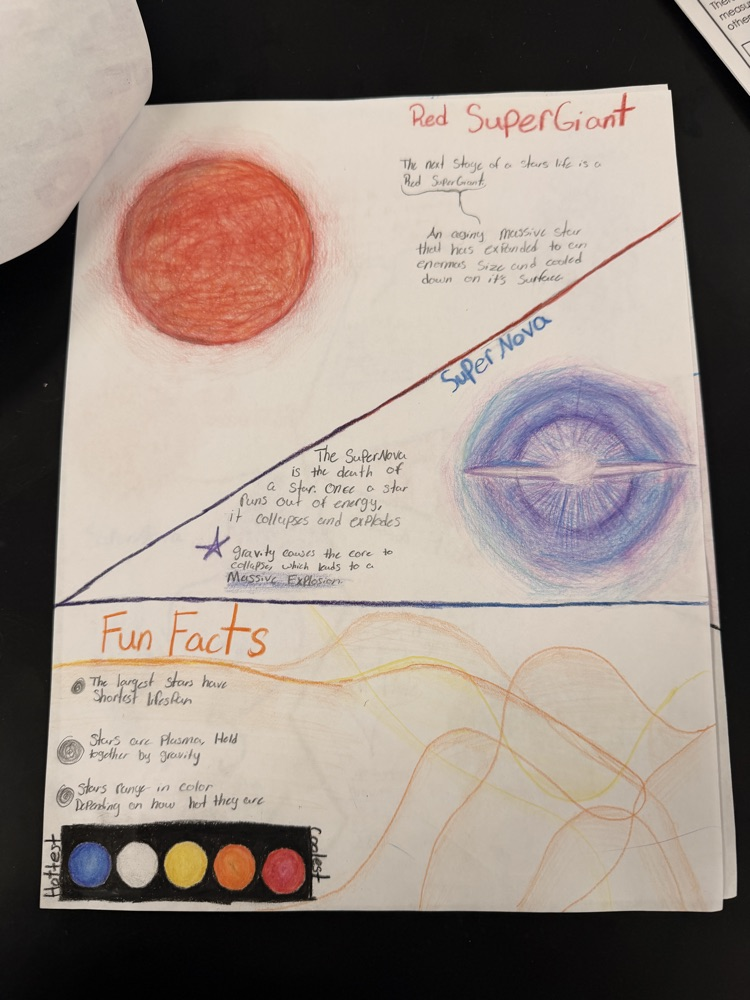 Red SuperGiant
The next stage of a stars life is a
Red SuperGiant.
An aging massive star
that has expanded to an
enormas size and cooled
down on it's surface
Super Nova
The SuperNova
is the death of
a star. Once a star
runs out of energy,
it collapses and explodes
gravity causes the core to
collapse, which leads to a
Massive Explosion.
Fun Facts
The largest stars have
Shortest lifespan
Stars are Plasma, Held
together by gravity
Stars range in color
Depending on how hot they are
Hottest
Coolest
measu
othe